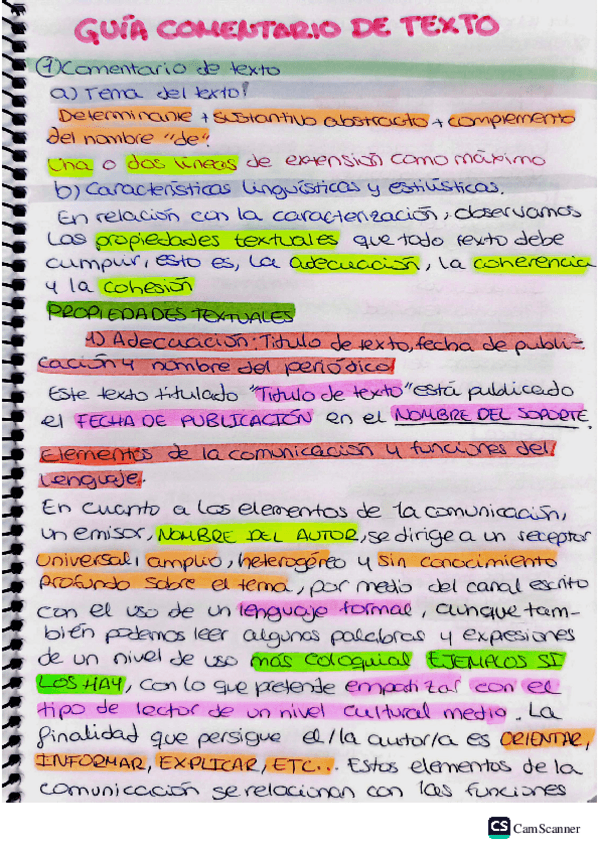 GUÍA COMENTARIO DE TEXTO
1) Comentario de texto
a) Tema del texto:
Determinante + sustantivo abstracto + complemento
del nombre "de".
Una o dos líneas de extensión como máximo
b) Características lingüísticas y estilísticas.
En relación con la caracterización, observamos
las propiedades textuales que todo texto debe
cumplir, esto es, la adecuación, la coherencia
y la cohesión
PROPIEDADES TEXTUALES
1) Adecuación: Titulo de texto, fecha de publi-
cación y nombre del periódico
Este texto titulado "Titulo de texto" está publicado
el FECHA DE PUBLICACIÓN en el NOMBRE DEL SOPORTE.
Elementos de la comunicación y funciones del
lenguaje.
En cuanto a los elementos de la comunicación,
un emisor, NOMBRE DEL AUTOR, se dirige a un receptor
universal, amplio, heterogéneo y sin conocimiento
profundo sobre el tema, por medio del canal escrito
con el uso de un lenguaje formal, aunque tam-
bién podemos leer algunas palabras y expresiones
de un nivel de uso más coloquial EJEMPLOS SI
LOS HAY, con lo que pretende empatizar con el
tipo de lector de un nivel cultural medio. La
finalidad que persigue el/la autor/a es ORIENTAR,
INFORMAR, EXPLICAR, ETC... Estos elementos de la
comunicación se relacionan con las funciones
CS CamScanner